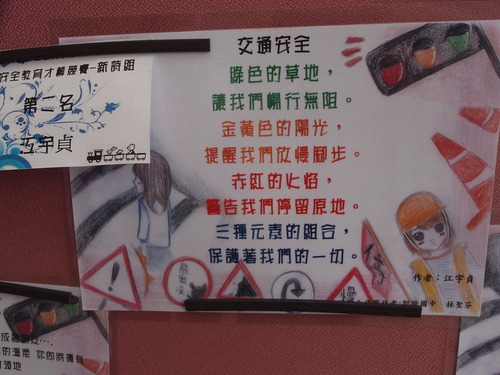 交通安全
綠色的草地，
讓我們暢行無阻。
金黃色的陽光，
提醒我們放慢腳步。
赤紅的火焰，
警告我們停留原地。
三種元素的組合，
保護著我們的一切。
作者：江宇貞
國中 林聖芬
安全教育才藝競賽-新詩組
第二名
江宇貞
慢